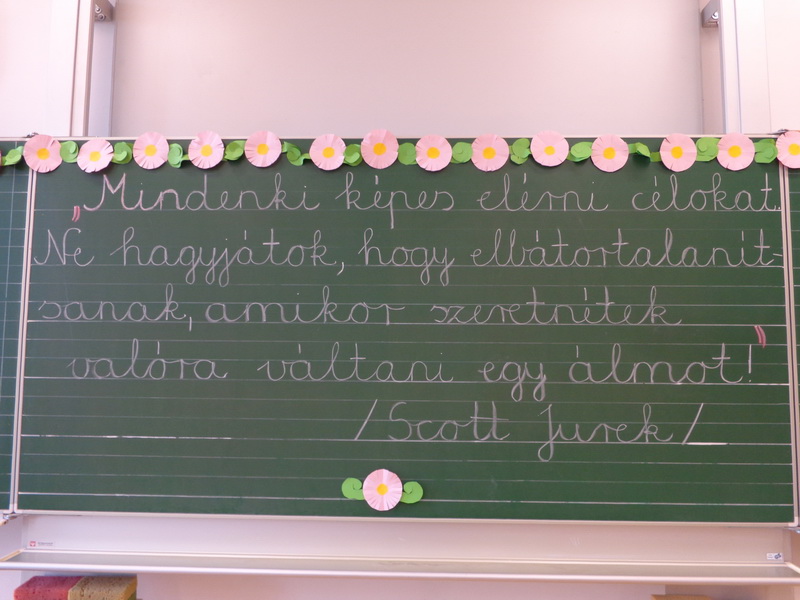 „Mindenki képes elérni célokat.
Ne hagyjátok, hogy elbátortalanít-
sanak, amikor szeretnétek
valóra váltani egy álmot!”
/Scott Jurek/